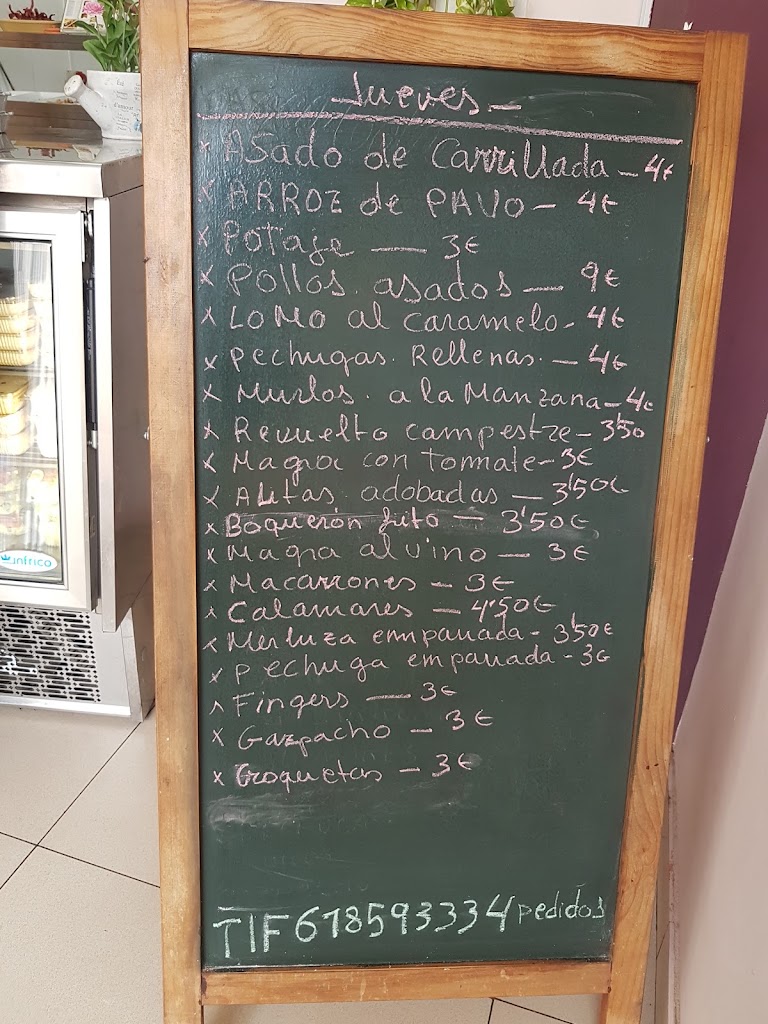 Jueves -
x Asado de Carrillada - 4€
x ARROZ de PAVO - 4€
x Potaje - 3€
x Pollos asados - 9€
x LOMO al caramelo - 4€
x Pechugas Rellenas. - 4€
x Muslos a la Manzana - 4€
x Revuelto campestre - 3'50
x Magra con tommate - 3€
x Alitas adobadas - 3'50€
x Boquerón frito - 3'50€
x Magra al vino - 3€
x Macarrones - 3€
x Calamares - 4'50€
x Merluza empanada - 3'50€
x Pechuga empanada - 3€
x Fingers - 3€
x Gazpacho - 3€
x Croquetas - 3€
TlF 678593334 pedidos
infrico